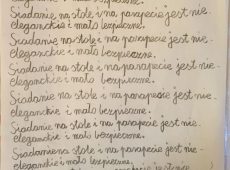 bezpieczne.
Siadanie na stole i na parapecie jest nie-
eleganckie i mało bezpieczne.
Siadanie na stole i na parapecie jest nie-
eleganckie i mało bezpieczne.
Siadanie na stole i na parapecie jest nie-
eleganckie i mało bezpieczne.
Siadanie na stole i na parapecie jest nie-
eleganckie i mało bezpieczne.
Siadanie na stole i na parapecie jest nie-
eleganckie i mało bezpieczne.
Siadanie na stole i na parapecie jest nie-
eleganckie i mało bezpieczne.